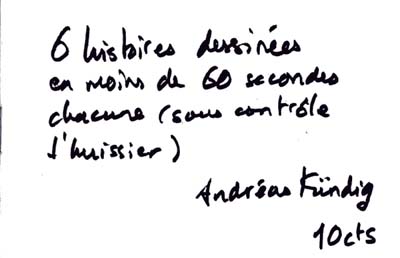 6 histoires dessinées
en moins de 60 secondes
chacune (sous contrôle
d'huissier)
Andréas Kündig
10cts